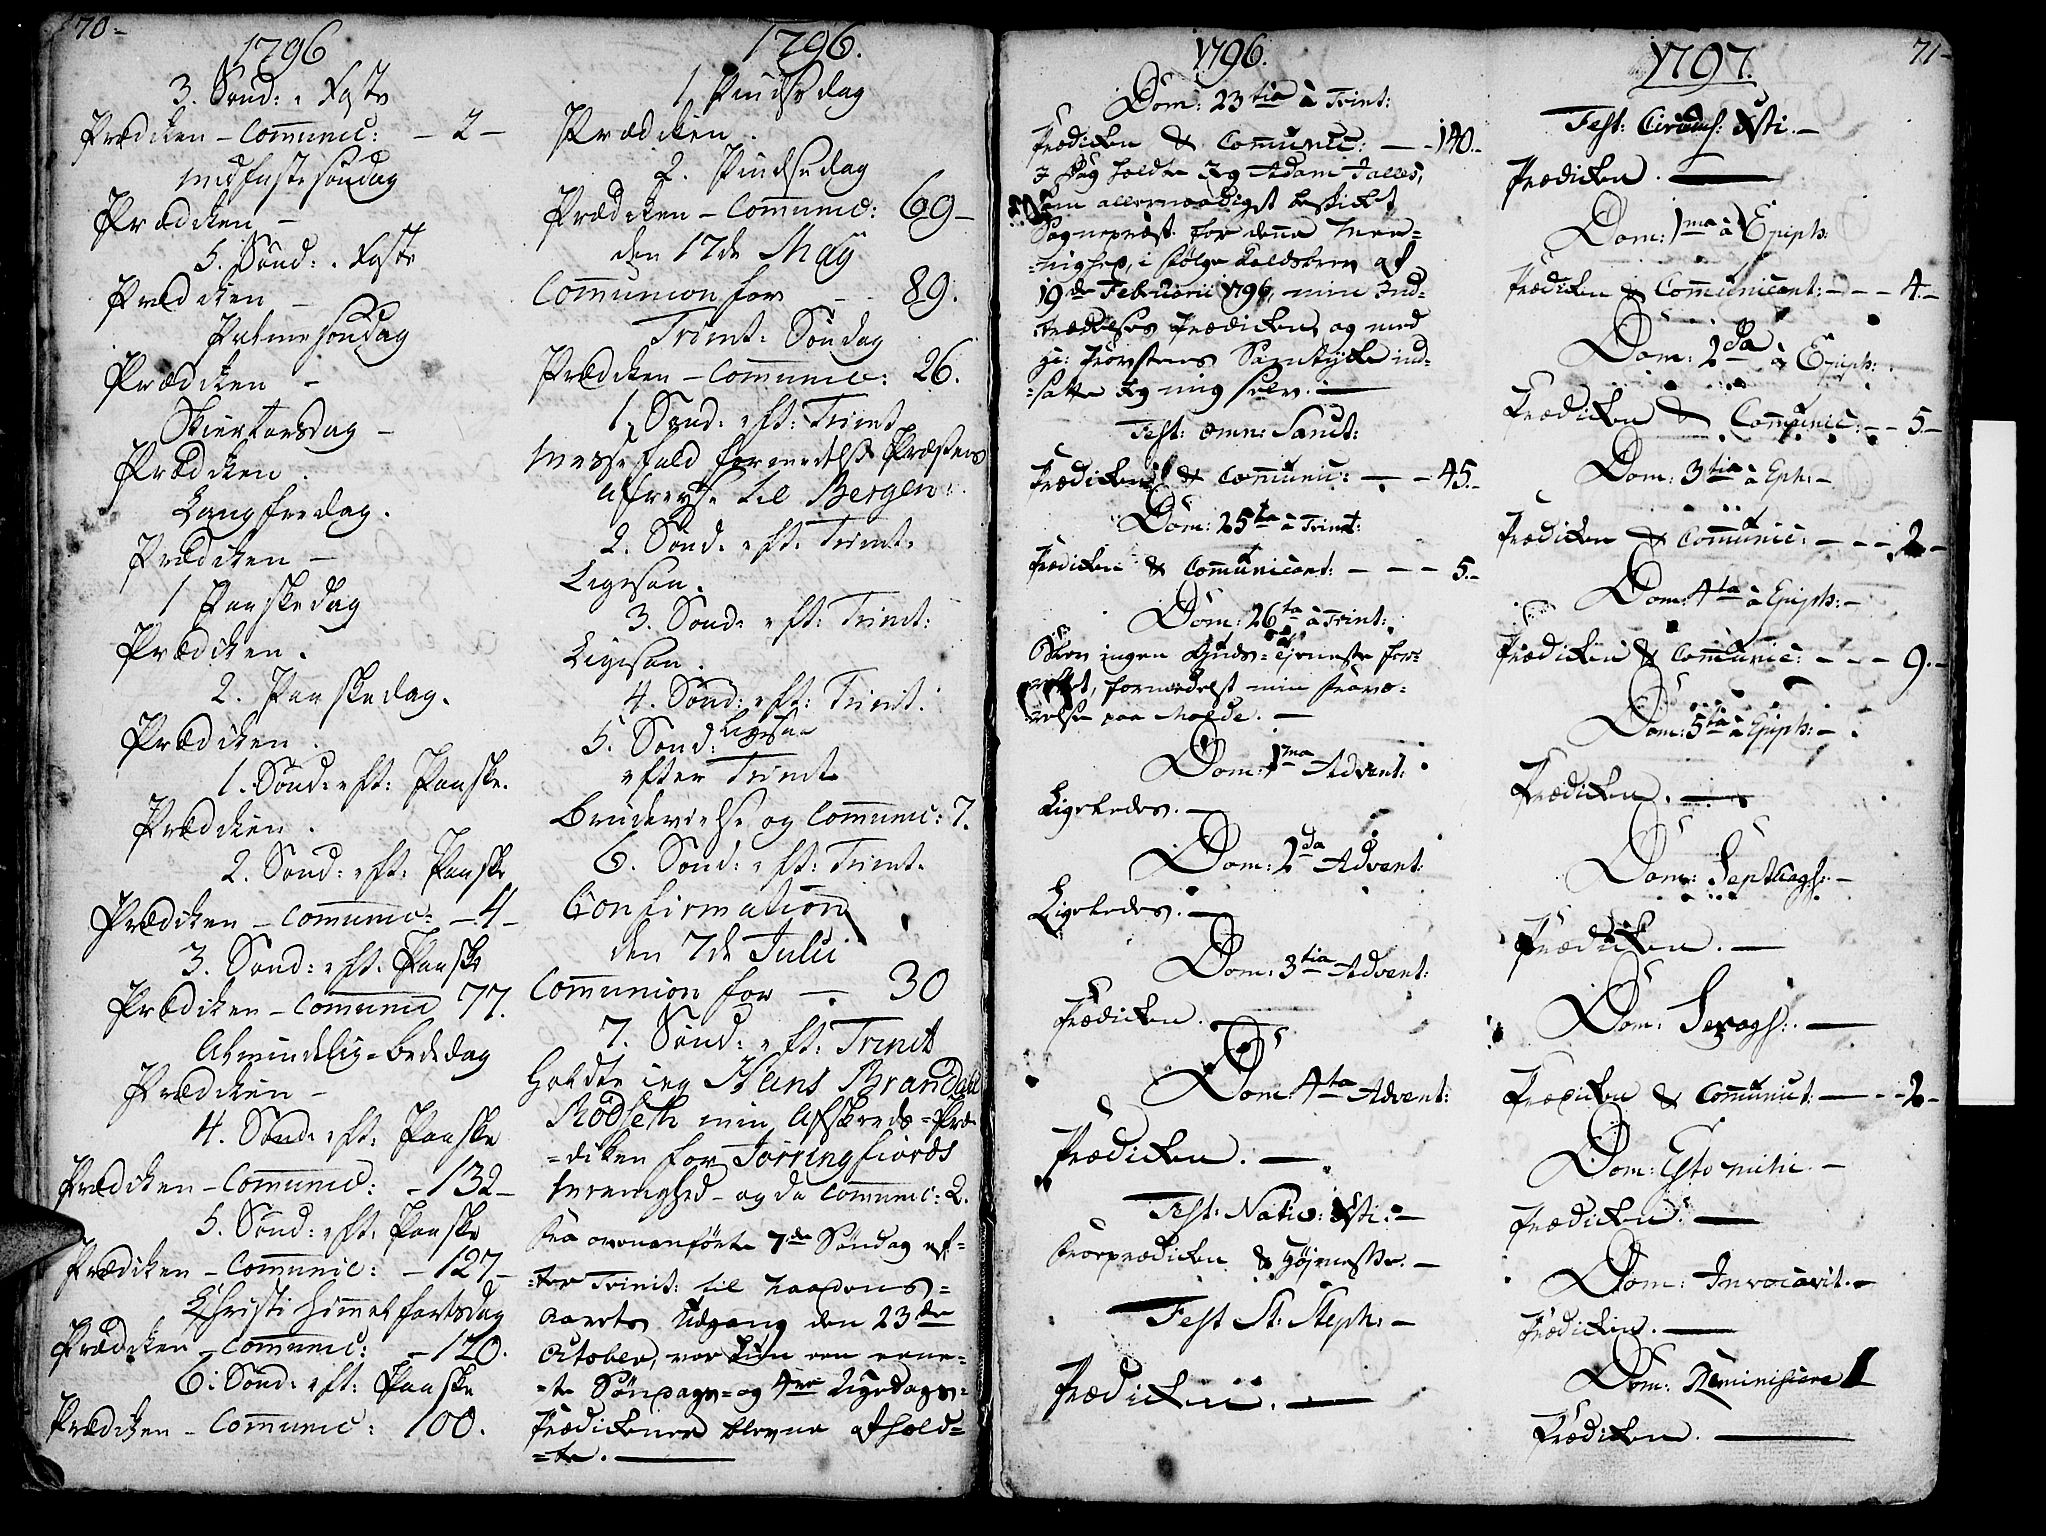 70-
1796
3. Sønd: i Faste
Prædiken - Communic: - 2 -
midfaste søndag
Prædiken -
5. Sønd: i Faste
Prædiken -
Palmesøndag
Prædiken -
Skiertorsdag -
Prædiken.
Langfredag.
Prædiken -
1 Paaskedag
Prædiken.
2. Paaskedag.
Prædiken.
1. Sønd: eft: Paaske.
Prædiken.
2. Sønd: eft: Paaske
Prædiken - Communic: - 4 -
3. Sønd: eft: Paaske
Prædiken - Communic 77.
Almindelig-Bededag
Prædiken -
4. Sønd: eft: Paaske
Prædiken - Communic: - 132 -
5. Sønd: eft: Paaske
Prædiken - Communic: - 127 -
Christi Himmelfartsdag
Prædiken - Communic: - 120.
6. Sønd: eft: Paaske
Prædiken - Communic: 100.
1796.
1 Pindsedag
Prædiken.
2. Pindsedag
Prædiken - Communic: 69 -
den 17de Maÿ
Communion for - - 89.
Trinit: Søndag
Prædiken - Communic: 26.
1. Sønd: eft: Trinit
Messefald formedelst Præstens
Afreyse til Bergen.
2. Sønd: eft: Trinit.
Ligesaa.
3. Sønd: eft: Trinit:
Ligesaa.
4. Sønd: eft: Trinit:
Ligesaa
5. Sønd:
efter Trinit.
Brudevielse og Communic: 7.
6. Sønd: eft: Trinit.
Confirmation
den 7de Julii
Communion for - 30
7. Sønd: eft: Trinit
holdte jeg Hans Brandahl
Rødseth min Afskeeds-Præ-
=diken for Tørringfiords
Menighed - og da Communic: 2.
Fra ovenanførte 7de Søndag ef=
=ter Trinit: til
Aarets Udgang den 23de
October, var
=te Søndags= og 4re Ugedags=
Prædikener blevne Ahold=
=te.
1796.
Dom: 23tia à Trinit:
Prædiken & Communic: - - 140.-
Dag holdte Jeg Adam
som allernaadigst beskikket
Sognepræst for denne Mee=
=nighed, i følge Kaldsbrev af
19de Februarii 1796, min Ind=
trædelses Prædiken, og med
Hr: Provstens Samtykke ind=
=satte Jeg mig selv. -
Fest: Omn: Sanct:
Prædiken & Communic: - - 45.-
Dom: 25ta à Trinit:
Prædiken & Communicant: - - - 5.-
Dom: 26ta à Trinit:
Blev ingen Guds=tjeneste for=
rettet, formedelst min Fravæ=
relse paa Molde. -
Dom: 1ma Advent:
Ligeledes. -
Dom: 2da Advent:
Ligeledes. -
Dom: 3tia Advent:
Prædiken.
Dom: 4ta Advent:
Prædiken. -
Fest: Nativ: Xsti. -
Froeprædiken & Højmesse. -
Fest St: Steph: -
Prædiken. -
1797.
71-
Fest: Circumcis: Xsti. -
Prædiken. -
Dom: 1ma à Epiph:
Prædiken & Communicant: - - - 4.-
Dom: 2da à Epiph:
Prædiken & Communic: - - 5.-
Dom: 3tia à Eph: -
Prædiken & Communic: - - - 2.-
Dom: 4ta à Epiph: -
Prædiken & Communic: - - - 9.-
Dom: 5ta à Epiph: -
Prædiken. -
Dom: Septuags: -
Prædiken. -
Dom: Sexags: -
Prædiken & Communict: - - - 2 -
Dom: Esto mihi -
Prædiken. -
Dom: Invocavit. -
Prædiken. -
Dom: Reminiscere
Prædiken. -